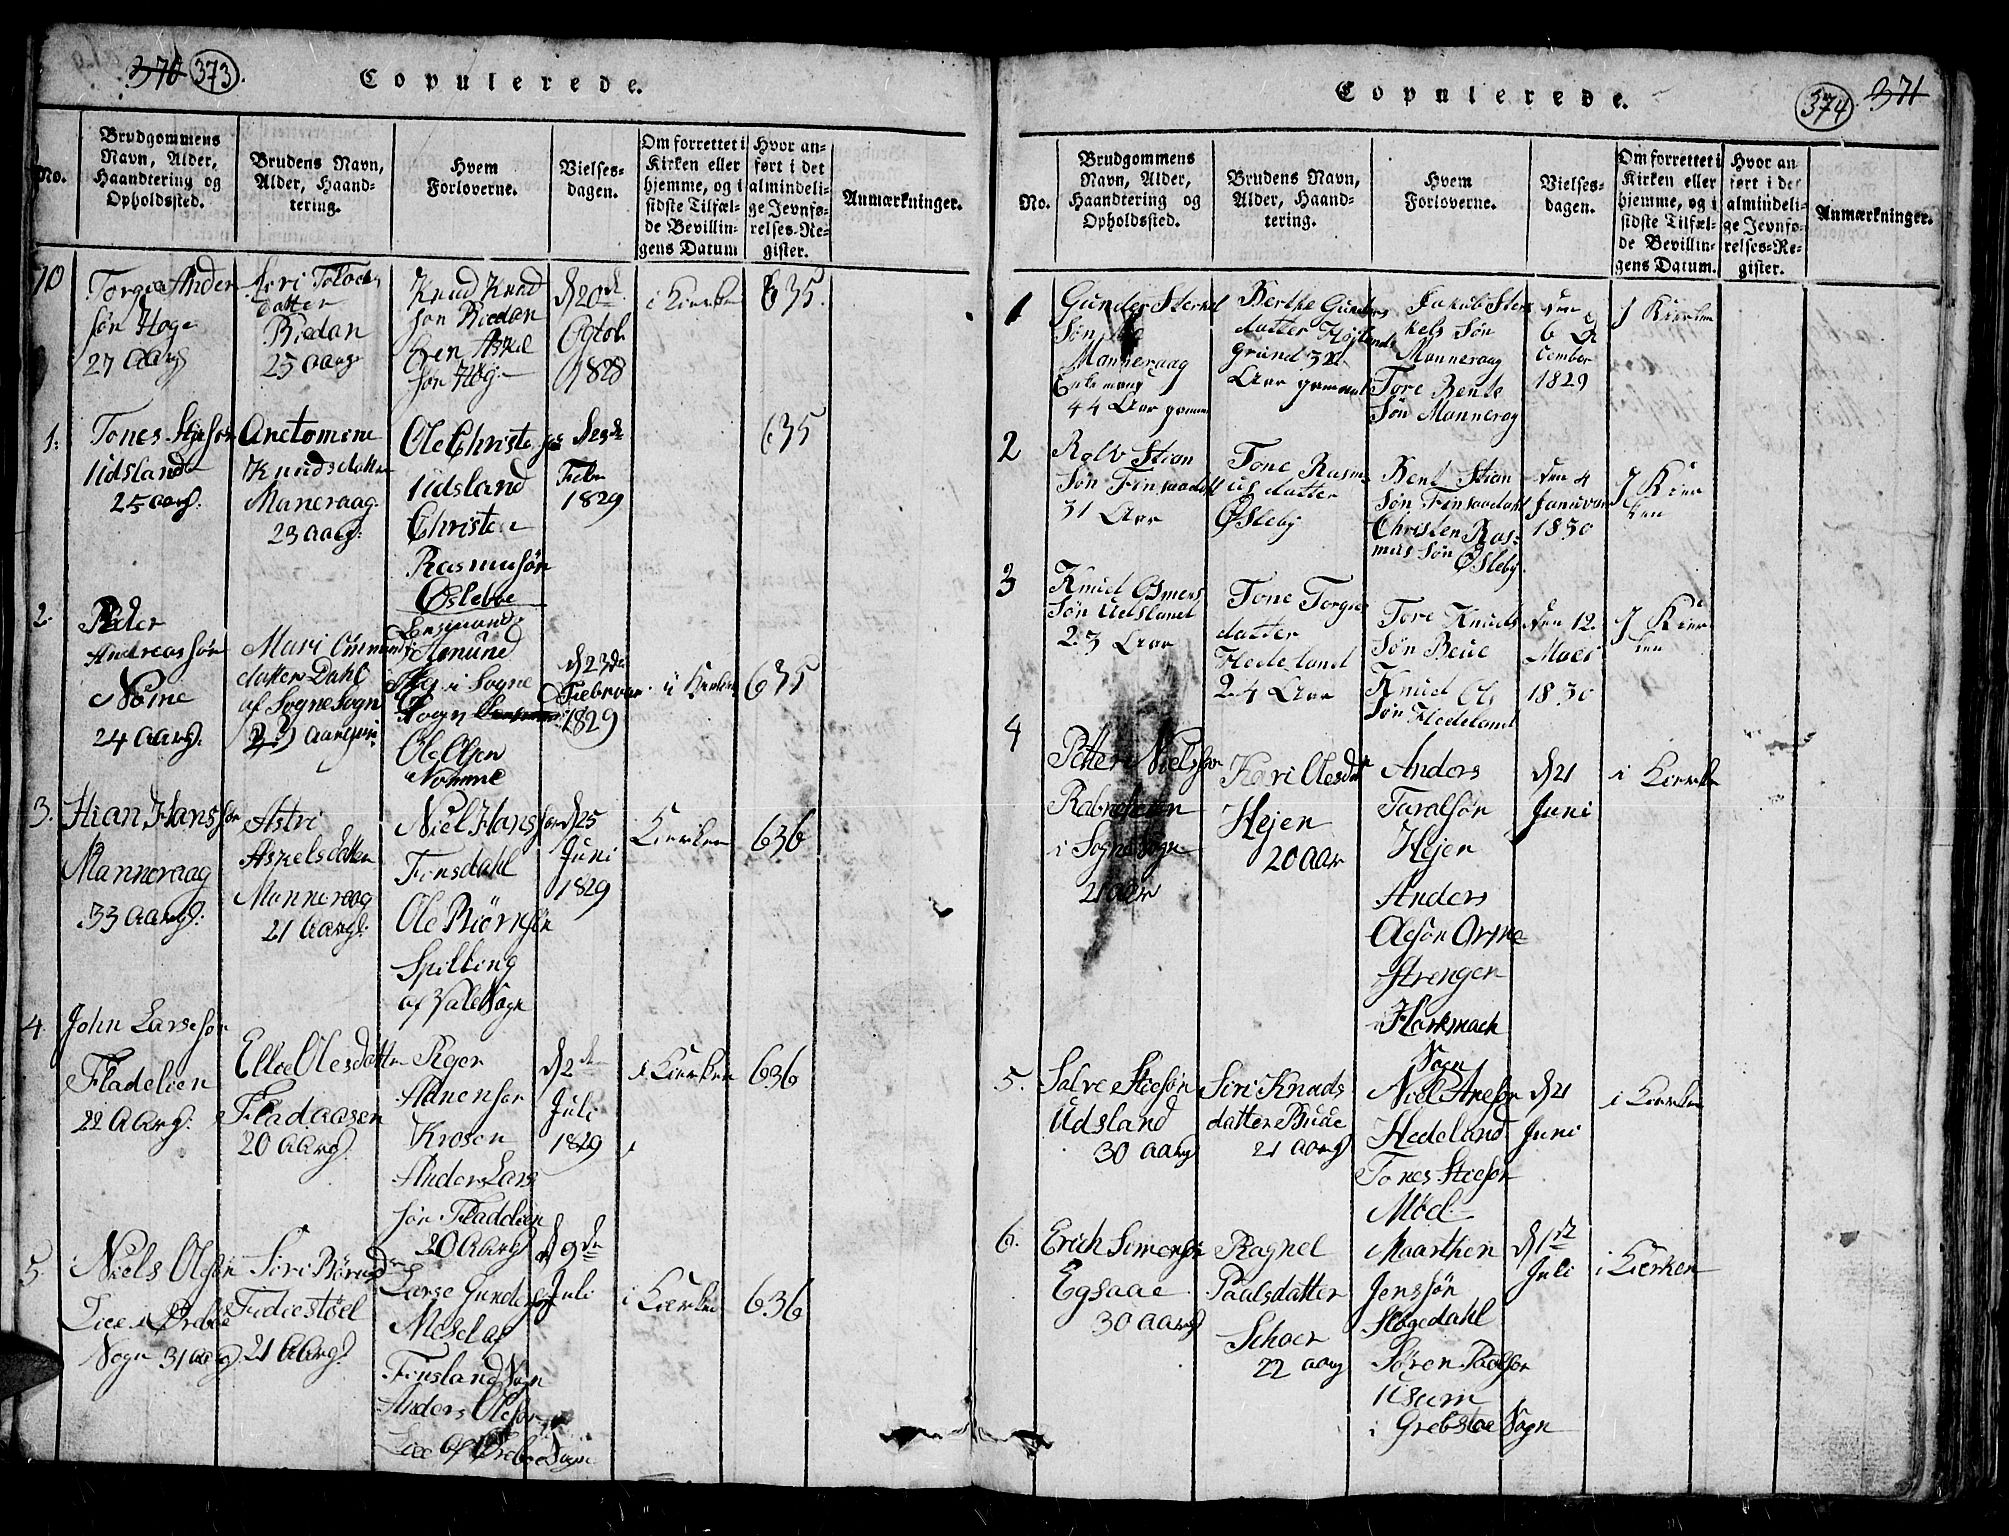 370 373.
Copulerede.
No.
Brudgommens
Navn, Alder,
Haandtering og
Opholdssted.
Brudens Navn,
Alder, Haand-
tering.
Hvem
Forloverne.
Vielses-
dagen.
Om forrettet i
Kirken eller
hjemme, og i
sidste Tilfæl-
de Bevillin-
gens Datum
Hvor an-
ført i det
almindeli-
ge Jevnfø-
relses-Re-
gister.
Anmærkninger.
10
Torgie Ander
søn Høge
27 Aarg
datter
Riedan
25 aarg
Knud Knud
søn Riedan
Askel
søn Høg
d 20de
Octob
1828
i Kierken
635.
1.
Tones
Udsland
25 aarg.
Anetomine
Knudsdatter
Maneraag
23 aarg.
Ole Christe
Udsland
Christen
Rasmusøn
Øslebøe
Feb
1829
635
2.
Peder
Andreassøn
Nome
24 aarg.
Mari Ommund
datter Dahl
af Sogne Sogn
aargl
Aamund
i Sogne
Sogn
Ole Olsen
Nomme
d 23de
Februar
1829
i Kierken
635
3.
Stian Hanssøn
Manneraag
33 aarg.
Astri
Askelsdatter
Manneraag
21 aargl.
Niel Hanssøn
Finsdahl
Ole Biørnsøn
Spilling
af Hale Sogn
d 25
Juni
1829
Kierken
636
4.
John Larsesøn
Fladelien
22 Aarg.
Ellie Olesdatter
Fladaasen
20 Aarg.
Reier
Adnensøn
Krosen
Anders Lars
søn Fladelien
20 Aarg
d 2den
Juli
1829
i Kierken
636
5.
Niels Olsøn
Liee i Øreboe
Sogn 31 aarg.
Siri
Fidiestøel
21 Aarg.
Larse Gunders
Mesel af
Finsland Sogn
Anders Olesøn
Liee af Øreboe Sogn
d 9de
Juli
i Kierken
636
Copulerede.
374. 371
No.
Brudgommens
Navn, Alder,
Haandtering og
Opholdssted.
Brudens Navn,
Alder, Haand-
tering.
Hvem
Forloverne.
Vielses-
dagen.
Om forrettet i
Kirken eller
hjemme, og i
sidste Tilfæl-
de Bevillin-
gens Datum.
Hvor an
ført i det
almindeli-
ge Jevnfø-
relses-Re-
gister.
Anmærkninger.
1
Gunder Sterkel
Søn
Manneraag
Enkemand
44 Aar gammel
Berthe Gunders
datter Højlands
grund 32
Aar gammel
Jakob Ster
kels Søn
Manneraag
Tore Bent
Søn Manneraag
den
6 De
cember
1829
J Kierken
2
Rolv Stian
Søn Finsaadahl
31 Aar
Tone Rasm
us datter
Øsleby
Bent Stian
Søn Finsaadahl
Christen Ras-
mus Søn Øsleby
den 4
Januvar
1830
J Kier
ken
3
Knud Osmens
Søn Udsland
23 Aar
Tone Torgies
datter
Hedeland
24 Aar
Tore Knuds
Søn Beue
Knud Ols
Søn Hedeland
den 12
Maes
1830
J Kier
ken
4
Petter Nielssøn
Rabneheien
i Sogne Sogn
21 aar
Kari Olesdat
Hejen
20 aar
Anders
Taralsøn
Hejen
Anders
Olesøn Orme
Strenger
Harkmach
Sogn
d 21
Juni
i Kierken
5.
Salve Stiesøn
Udsland
30 aarg
Siri Knuds
datter Buue
21 aarg
Niel Anesøn
Hedeland
Tones Stiesøn
Mod
d 21
Juni
i Kierken
6.
Erich Simensøn
Egsaae
30 aarg
Ragnel
Paalsdatter
Schoer
22 aarg
Maarthen
Jenssøn
Stogedahl
Søren Paalsøn
Useim
i Grebstae Sogn
d 1ste
Juli
i Kierken